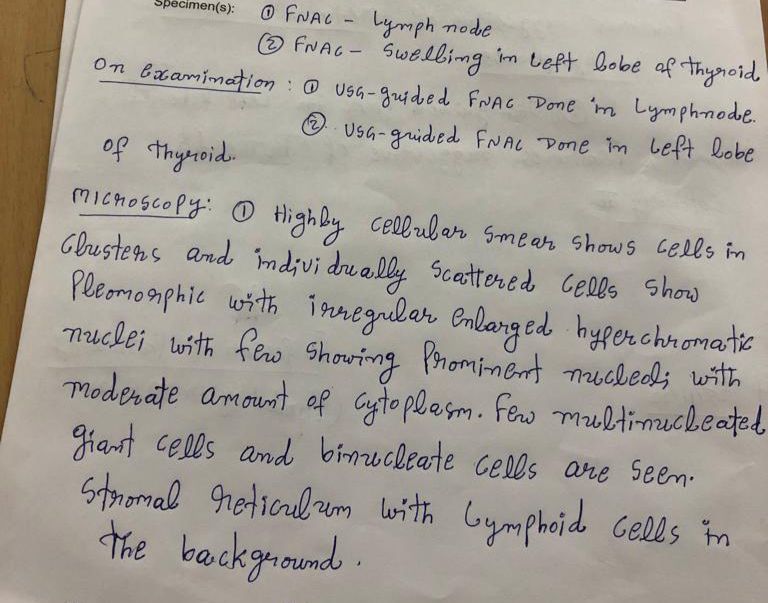 Specimen(s): ① FNAC - Lymph node
② FNAC - Swelling in Left lobe of Thyroid
On Examination : ① USG-guided FNAC Done in Lymphnode.
② USG-guided FNAC Done in Left lobe
of Thyroid.
Microscopy: ① Highly cellular smear shows cells in
Clusters and individually scattered cells show
Pleomorphic with irregular enlarged hyperchromatic
nuclei with few showing Prominent nucleoli with
moderate amount of cytoplasm. Few multinucleated
giant cells and binucleate cells are seen.
Stromal reticulum with Lymphoid cells in
the background.